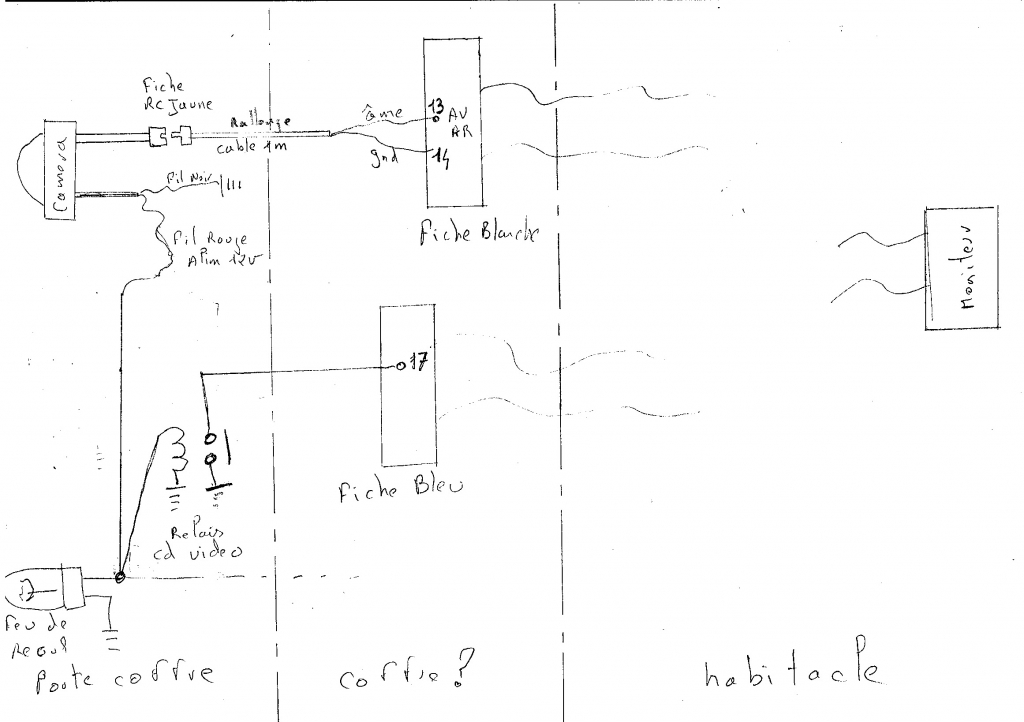 Fiche
RC Jaune
Rallonge
cable 1m
âme
gnd
13
AV
AR
14
Camera
Fil Noir
Fil Rouge
Alim 12V
Fiche Blanche
Moniteur
?
17
Fiche Bleu
Relais
cd video
Feu de
Recul
Porte coffre
coffre?
habitacle